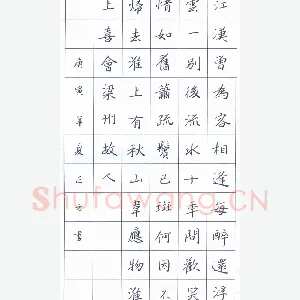 江漢曾為客相逢每醉還浮
雲一別後流水十年間歡笑
情如舊蕭疏鬢已斑何因不
歸去淮上有秋山韋應物淮
上喜會梁州故人
庚寅年夏三書
Shufawang.CN